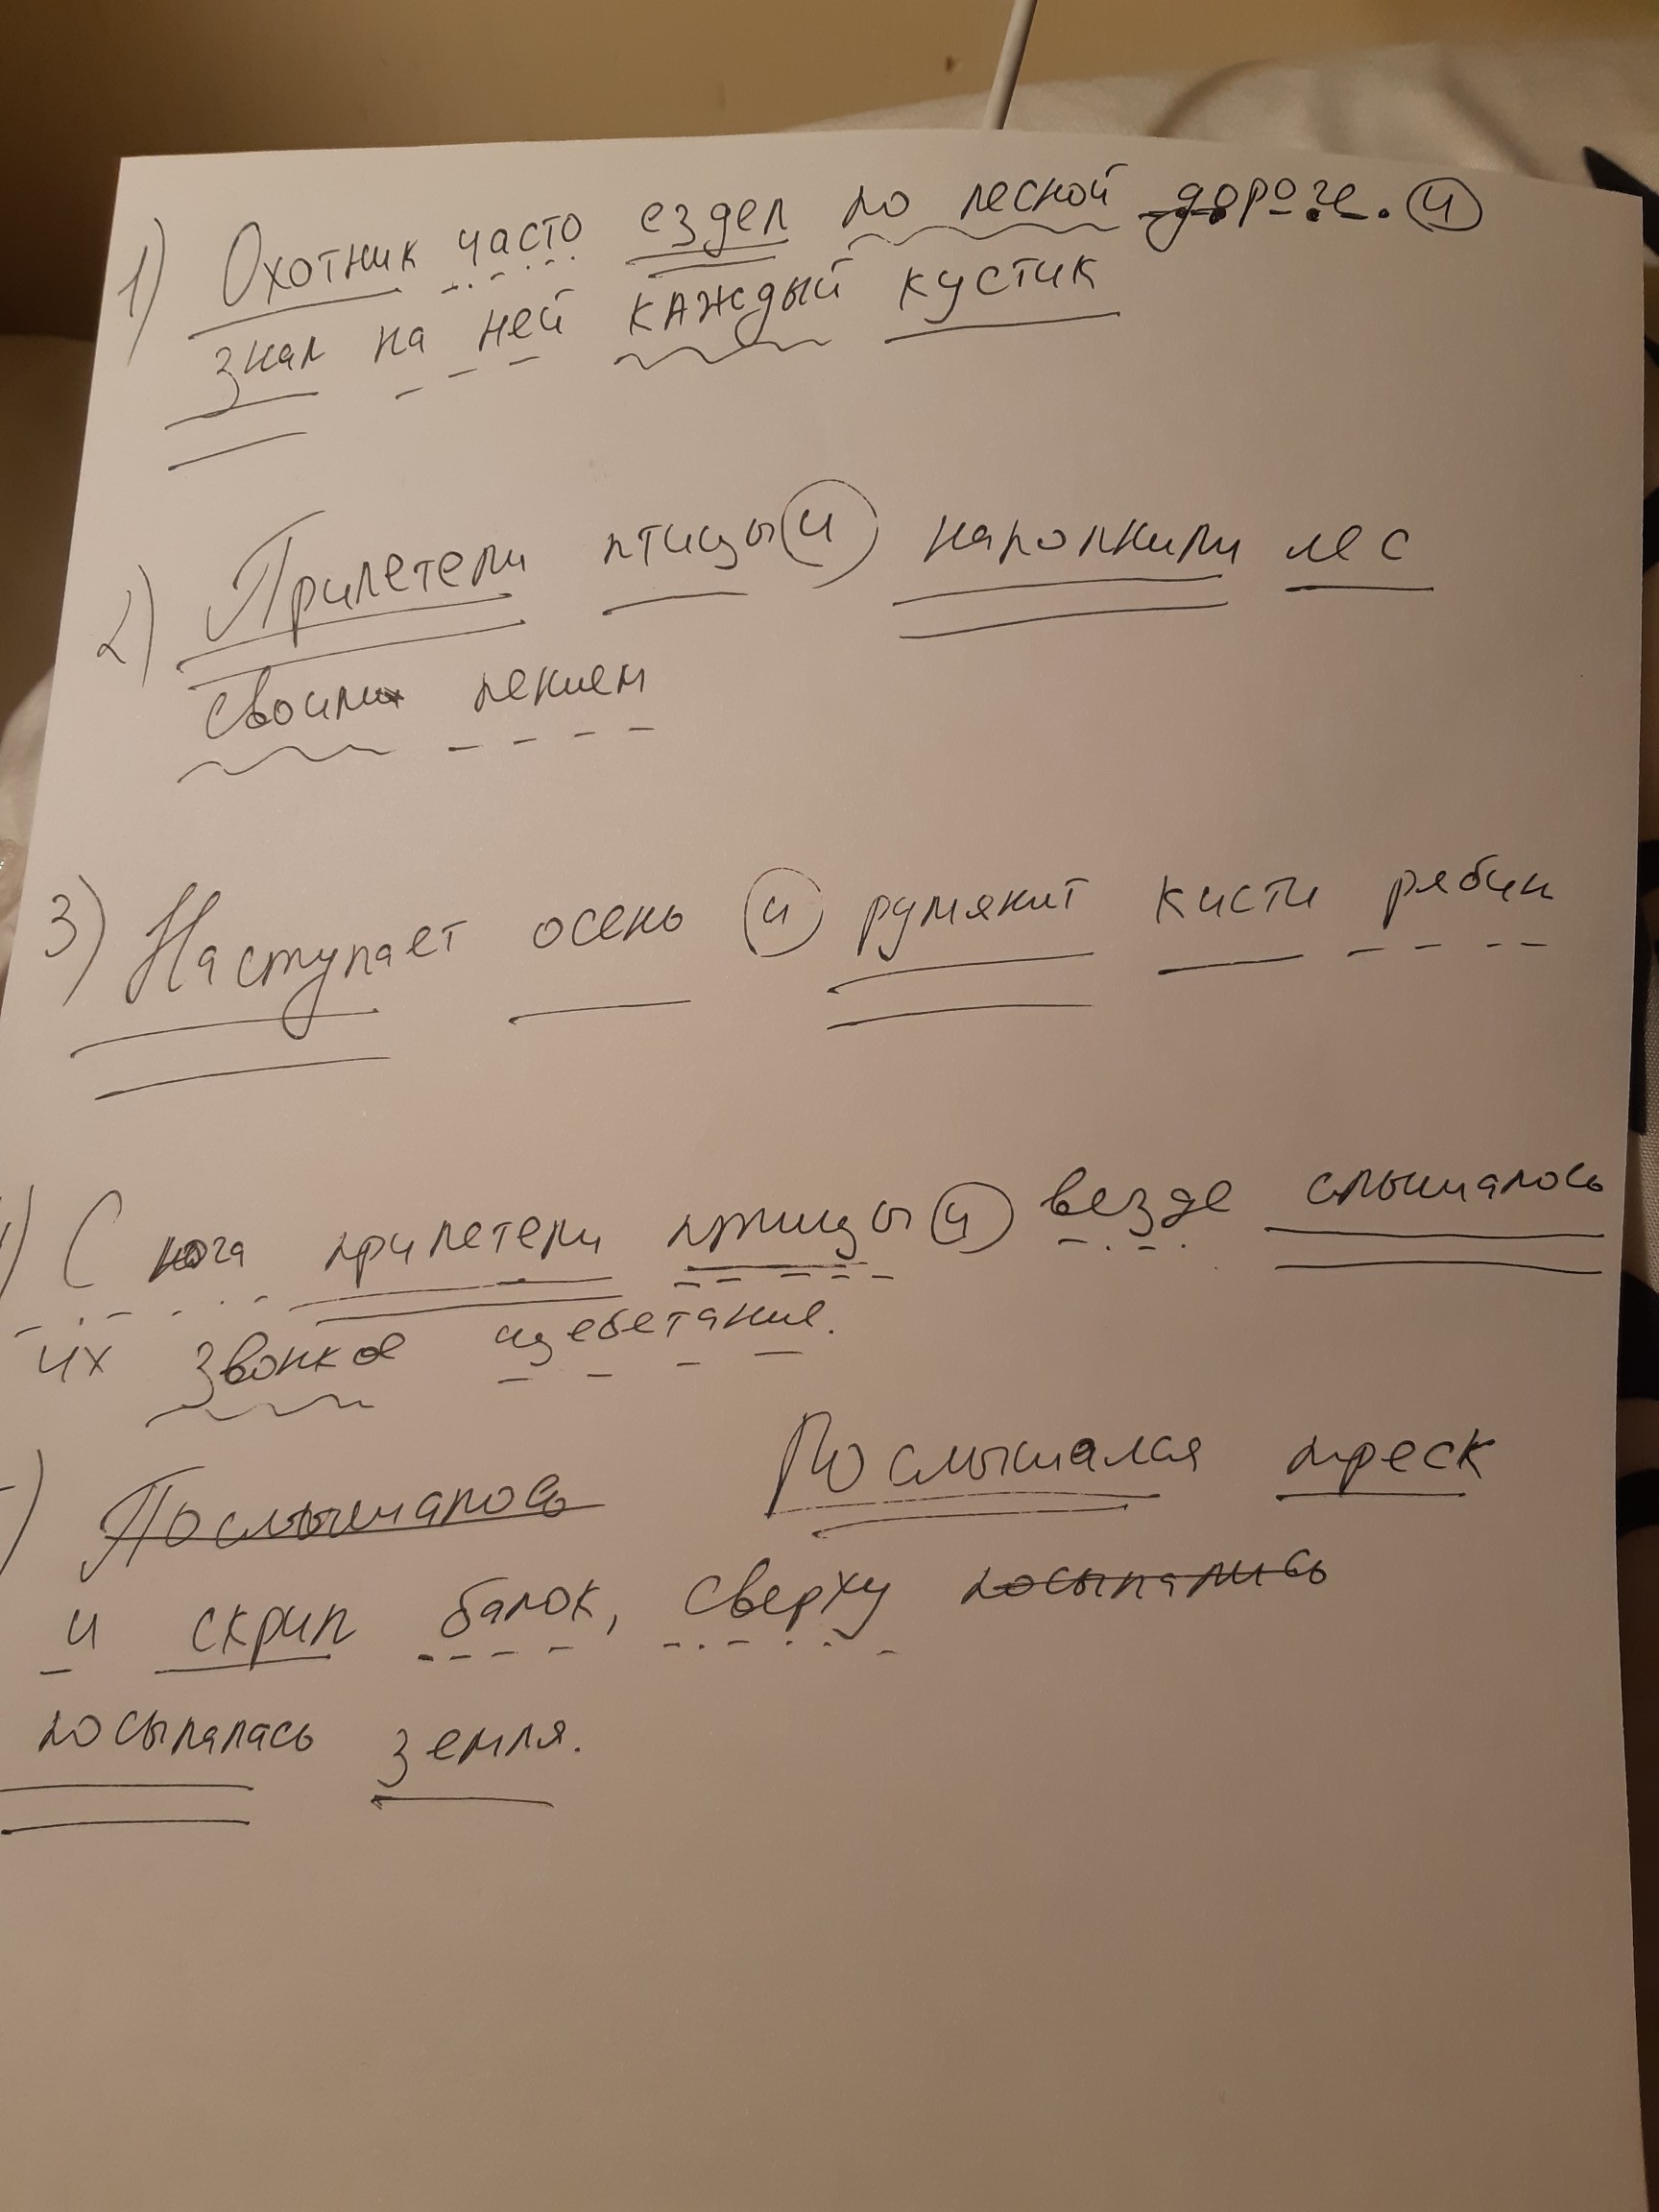 1) Охотник часто ездел по лесной дороге. и
знал на ней каждый кустик
2) Прилетели птицы и наполнили лес
своим пением
3) Наступает осень и румянит кисти рябин
4) С юга прилетели птицы и везде слышалось
их звонкое щебетание.
) Послышалось Послышался треск
и скрип балок, сверху посыпались
посыпалась земля.